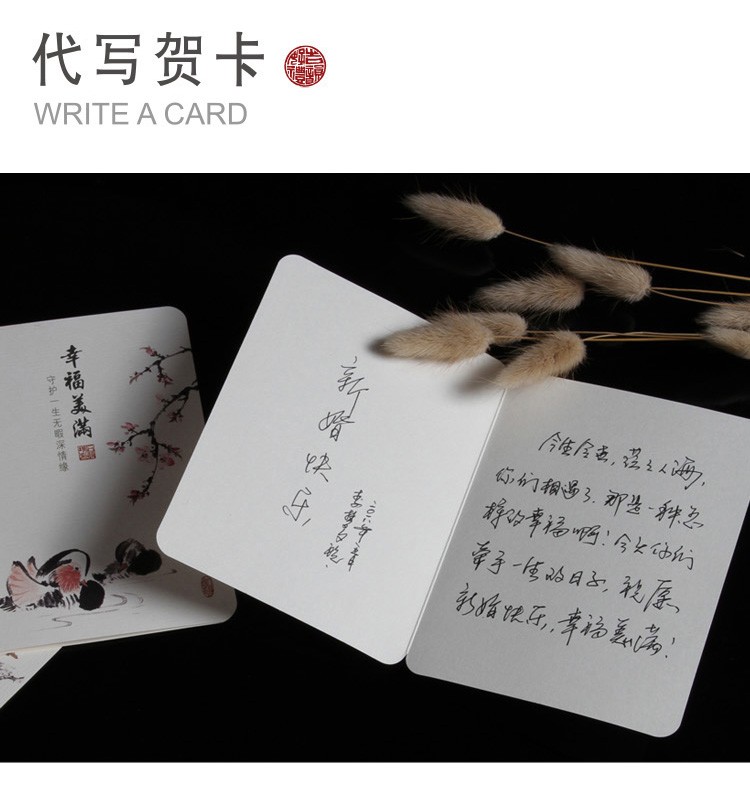 代写贺卡
WRITE A CARD
幸福美满
守护一生无暇深情缘
新婚快乐
今生今世，茫茫人海，
你们相遇了，那是一种怎
样的幸福啊！今天你们
牵手一生的日子，祝愿
新婚快乐，幸福美满！